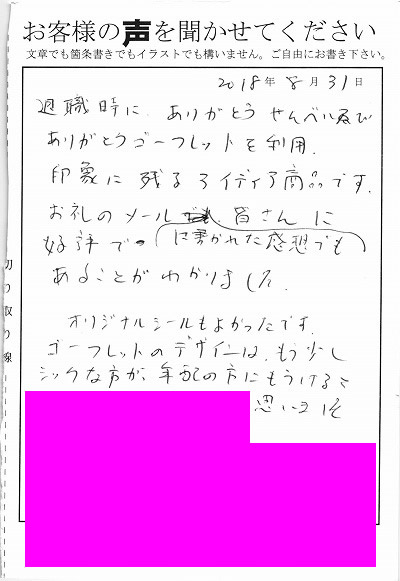 お客様の声を聞かせてください
文章でも箇条書きでもイラストでも構いません。ご自由にお書き下さい。
2018年8月31日
退職時に、ありがとうせんべい及び
ありがとうゴーフレットを利用.
印象に残るアイディア商品です.
お礼のメール 皆さんに
好評で に書かれた感想でも
あることがわかりました.
オリジナルシールもよかったです.
ゴーフレットのデザインは、もう少し
シックな方が、年配の方にもうける
思います
切り取り線